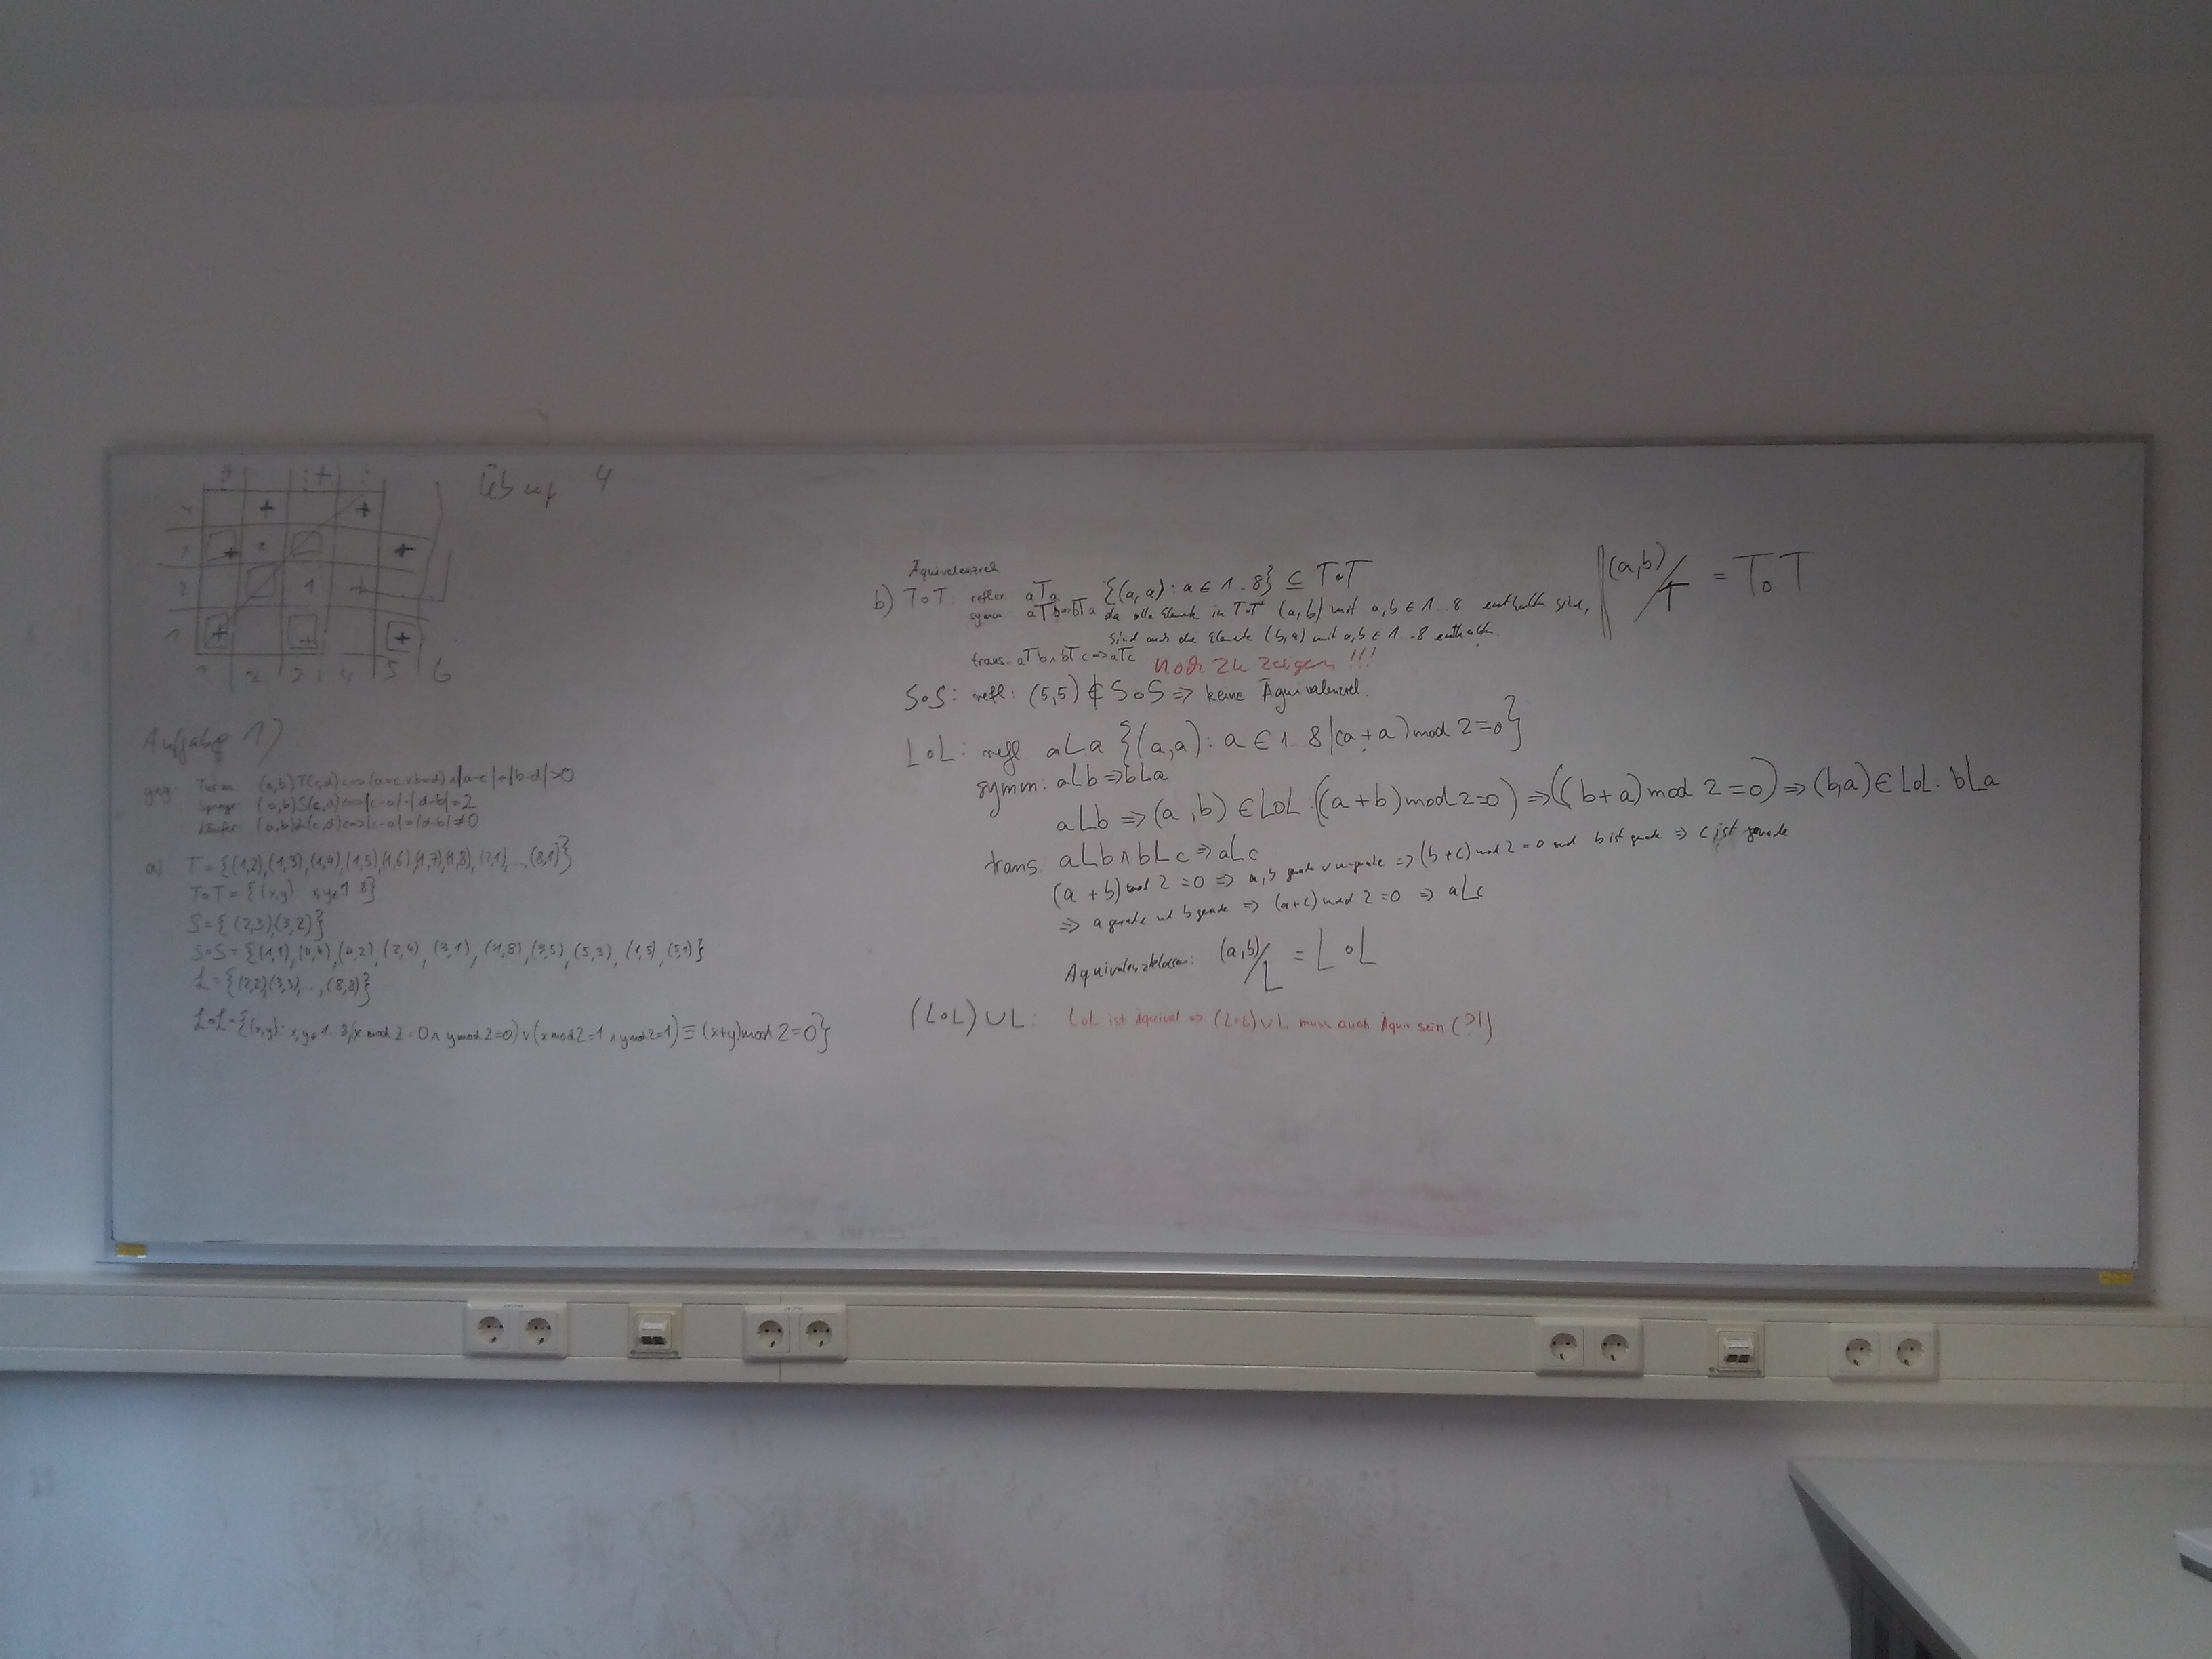 Übung 4
+ +
+ 2 +
2 1 +
1 + + +
1 2 3 4 5 6
Aufgabe 1)
geg: Turm (a,b)T(c,d)⇔(a=c∨b=d)∧|a-c|+|b-d|>0
(a,b)S(c,d)⇔|c-a|·|d-b|=2
Läufer: (a,b)L(c,d)⇔|c-a|=|d-b|≠0
a) T={(1,2),(1,3),(1,4),(1,5),(1,6),(1,7),(1,8),(2,1),...,(8,1)}
T∘T={(x,y) x,y∈1..8}
S={(2,3),(3,2)}
S∘S={(1,1),(4,4),(4,2),(2,4),(3,1),(1,8),(3,5),(5,3),(1,5),(5,1)}
L={(2,2),(3,3),...,(8,8)}
L∘L={(x,y): x,y∈1..8|(x mod 2=0∧y mod 2=0)∨(x mod 2=1∧y mod 2=1)≡(x+y)mod 2=0}
Äquivalenzrel
b) T∘T: reflex. aTa {(a,a): a∈1..8}⊆T∘T
symm: aTb⇒bTa da alle Elemente in T∘T (a,b) mit a,b∈1..8 enthalten sind,
sind auch die Elemente (b,a) mit a,b∈1..8 enthalten.
trans. aTb∧bTc⇒aTc noch zu zeigen!!!
(a,b)/T = T∘T
S∘S: refl: (5,5)∉S∘S⇒keine Äquivalenzrel.
L∘L: refl aLa {(a,a): a∈1..8|(a+a)mod 2=0}
symm: aLb⇒bLa
aLb⇒(a,b)∈L∘L:((a+b)mod 2=0)⇒((b+a)mod 2=0)⇒(b,a)∈L∘L. bLa
trans. aLb∧bLc⇒aLc
(a+b)mod 2=0⇒a,b gerade ∨ ungerade⇒(b+c)mod 2=0 und b ist gerade⇒c ist gerade
⇒a gerade und b gerade⇒(a+c)mod 2=0⇒aLc
Äquivalenzklassen: (a,b)/L = L∘L
(L∘L)∪L: L∘L ist Äquival⇒(L∘L)∪L muss auch Äquiv sein (?!)